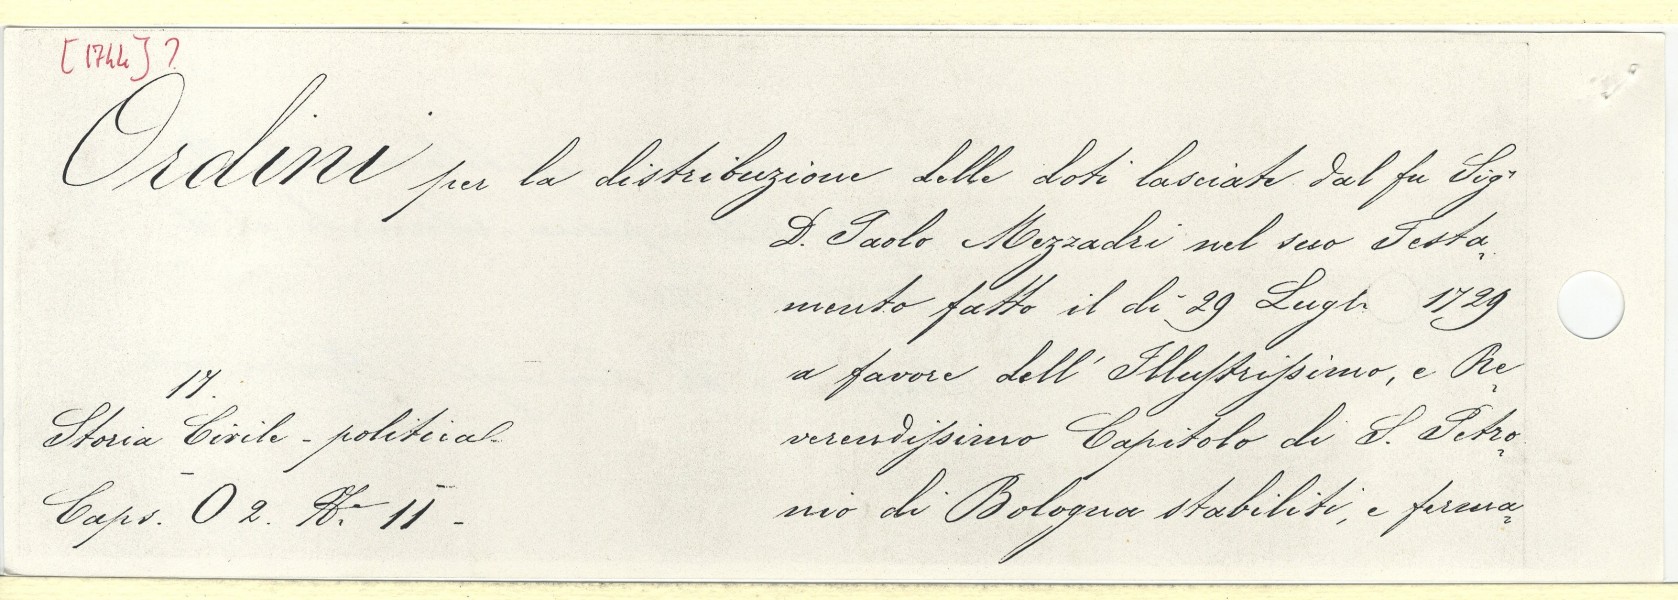 [1744]?
Ordini per la distribuzione delle doti lasciate dal fu Sigr
D. Paolo Mezzadri nel suo Testa-
mento fatto il di 29 Lugl. 1729
a favore dell' Illustrissimo, e Re-
verendissimo Capitolo di S. Petro-
nio di Bologna stabiliti, e ferma-
17.
Storia Civile - political-
Caps. O 2. No. 11 -